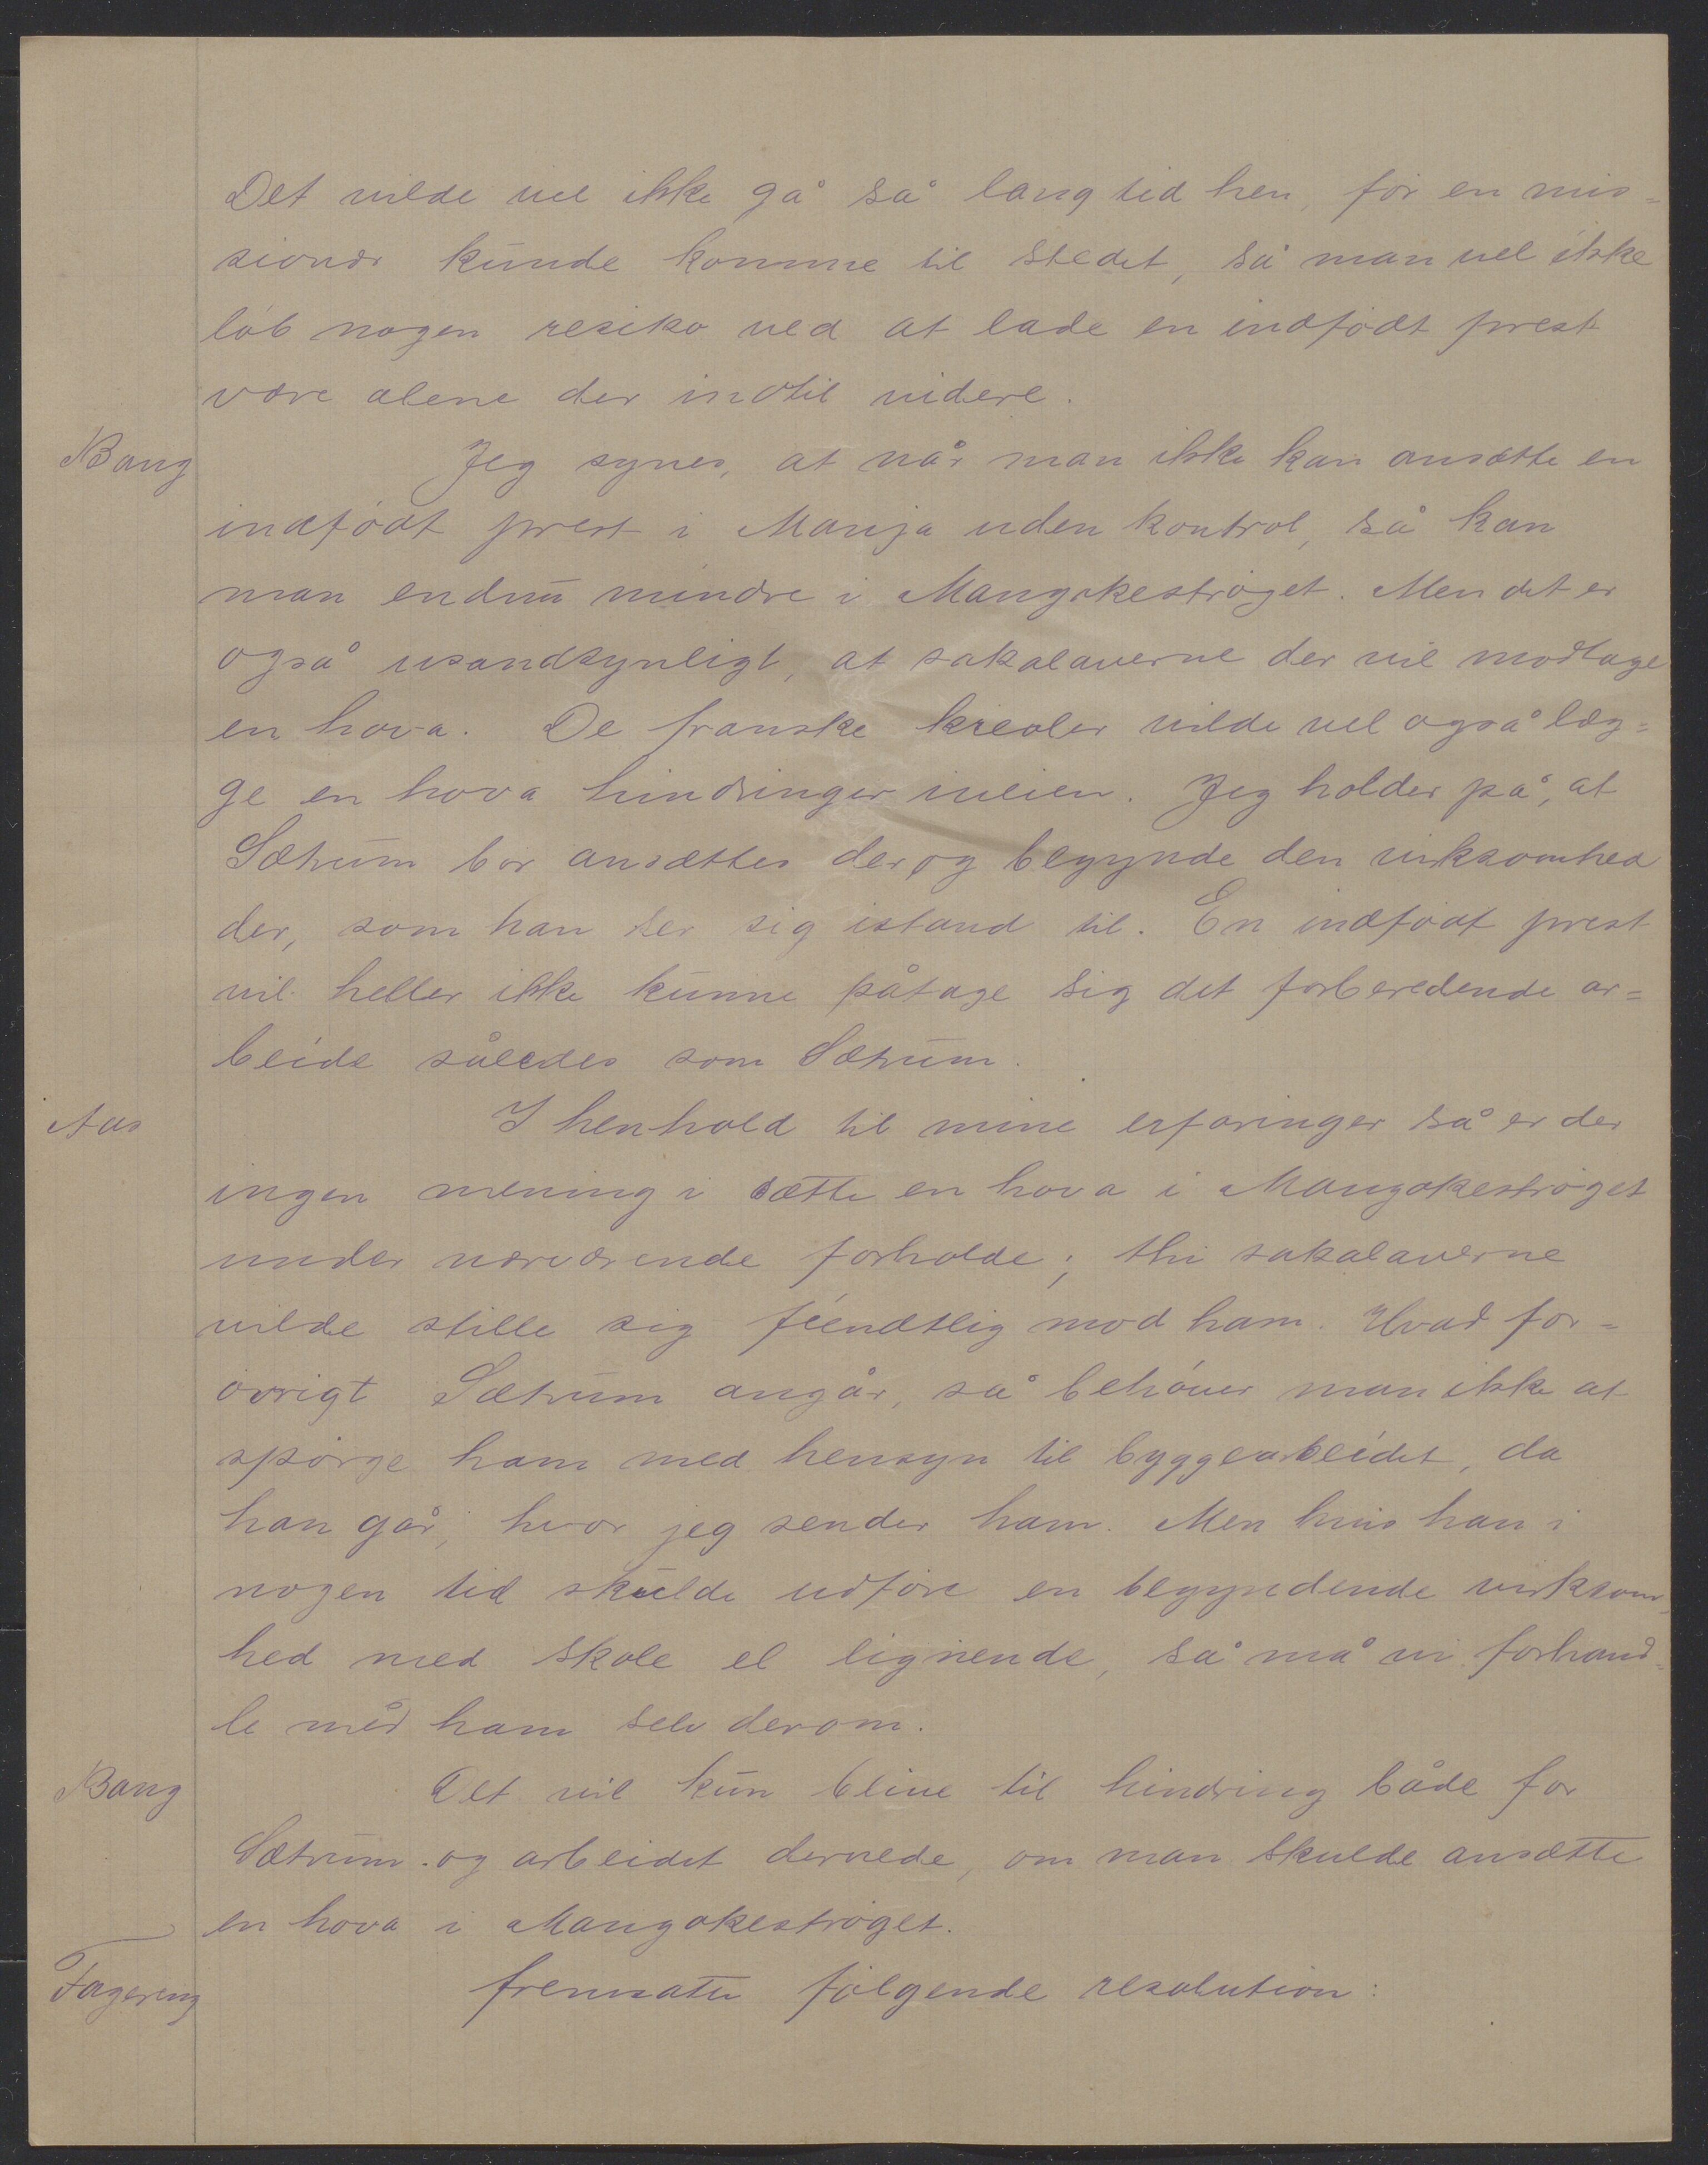 Det vilde vel ikke gå så lang tid hen, før en mis=
sionær kunde komme til stedet, så man vel ikke
løb nogen resiko ved at lade en indfødt prest
være alene der indtil videre.
Bang Jeg synes, at når man ikke kan ansætte en
indfødt prest i Manja uden kontrol, så kan
man endnu mindre i Mangokestrøget. Men det er
også usandsynligt, at sakalaverne der vil modtage
en hova. De franske kreoler vilde vel også læg=
ge en hova hindringer iveien. Jeg holder på, at
Sætrum bør ansættes der og begynde den virksomhed
der, som han ser sig istand til. En indfødt prest
vil heller ikke kunne påtage sig det forberedende ar=
beide således som Sætrum.
Aas I henhold til mine erfaringer så er der
ingen mening i sætte en hova i Mangokestrøget
under nærværende forholde; thi sakalaverne
vilde stille sig fiendtlig mod ham. Hvad for=
øvrigt Sætrum angår, så behøver man ikke at
spørge ham med hensyn til byggearbeidet, da
han går, hvor jeg sender ham. Men hvis han i
nogen tid skulde udføre en begyndende virksom=
hed med skole el lignende, så må vi forhand=
le med ham selv derom.
Bang Det vil kun blive til hindring både for
Sætrum og arbeidet dernede, om man skulde ansætte
en hova i Mangokestrøget.
Fagereng fremsatte følgende resolution: